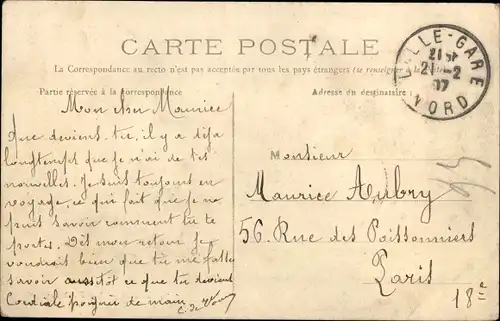 CARTE POSTALE
La Correspondance au recto n'est pas acceptée par tous les pays étrangers (se renseigner à la
Partie réservée à la correspondance
Adresse du destinataire
LILLE-GARE
21-2
07
NORD
Mon cher Maurice
Que deviens tu, il y a déjà
longtemps que je n'ai de tes
nouvelles. Je suis toujours en
voyage, ce qui fait que je ne
puis savoir comment tu te
portes. Dès mon retour je
voudrais bien que tu me fasses
savoir aussitôt ce que tu deviens
Cordiale poignée de main
Monsieur
Maurice Aubry
56, Rue des Poissonniers
Paris
18e